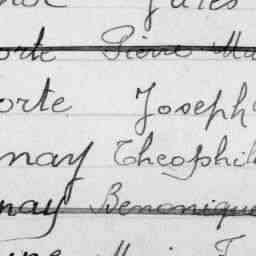 Jules
orte Pierre Ma
orte Joseph
nay Theophil
nay Benonique